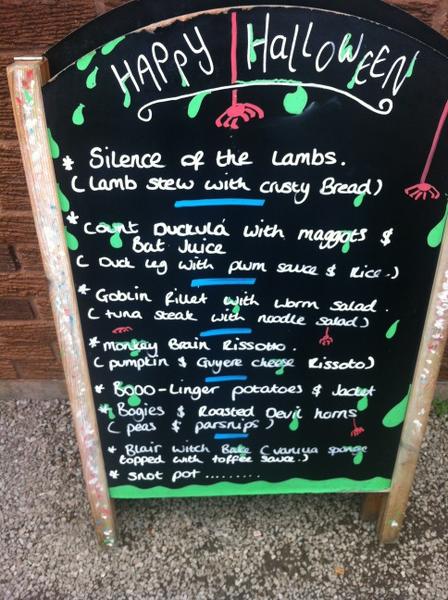 HAPPY HallOWEEN
* Silence of the Lambs.
( Lamb stew with crusty Bread )
* Count Duckulá with maggots &
Bat Juice
( Duck leg with plum sauce & Rice .)
* Goblin fillet with worm salad .
( tuna steak with noodle salad )
* monkey Brain Rissotto .
( pumpkin & Guyere cheese Rissoto )
* Booo-Linger potatoes & Jacket
* Bogies & Roasted Devil horns
( peas & parsnips )
* Blair witch Bake ( vanilla sponge
topped with toffee sauce .)
* snot pot .........